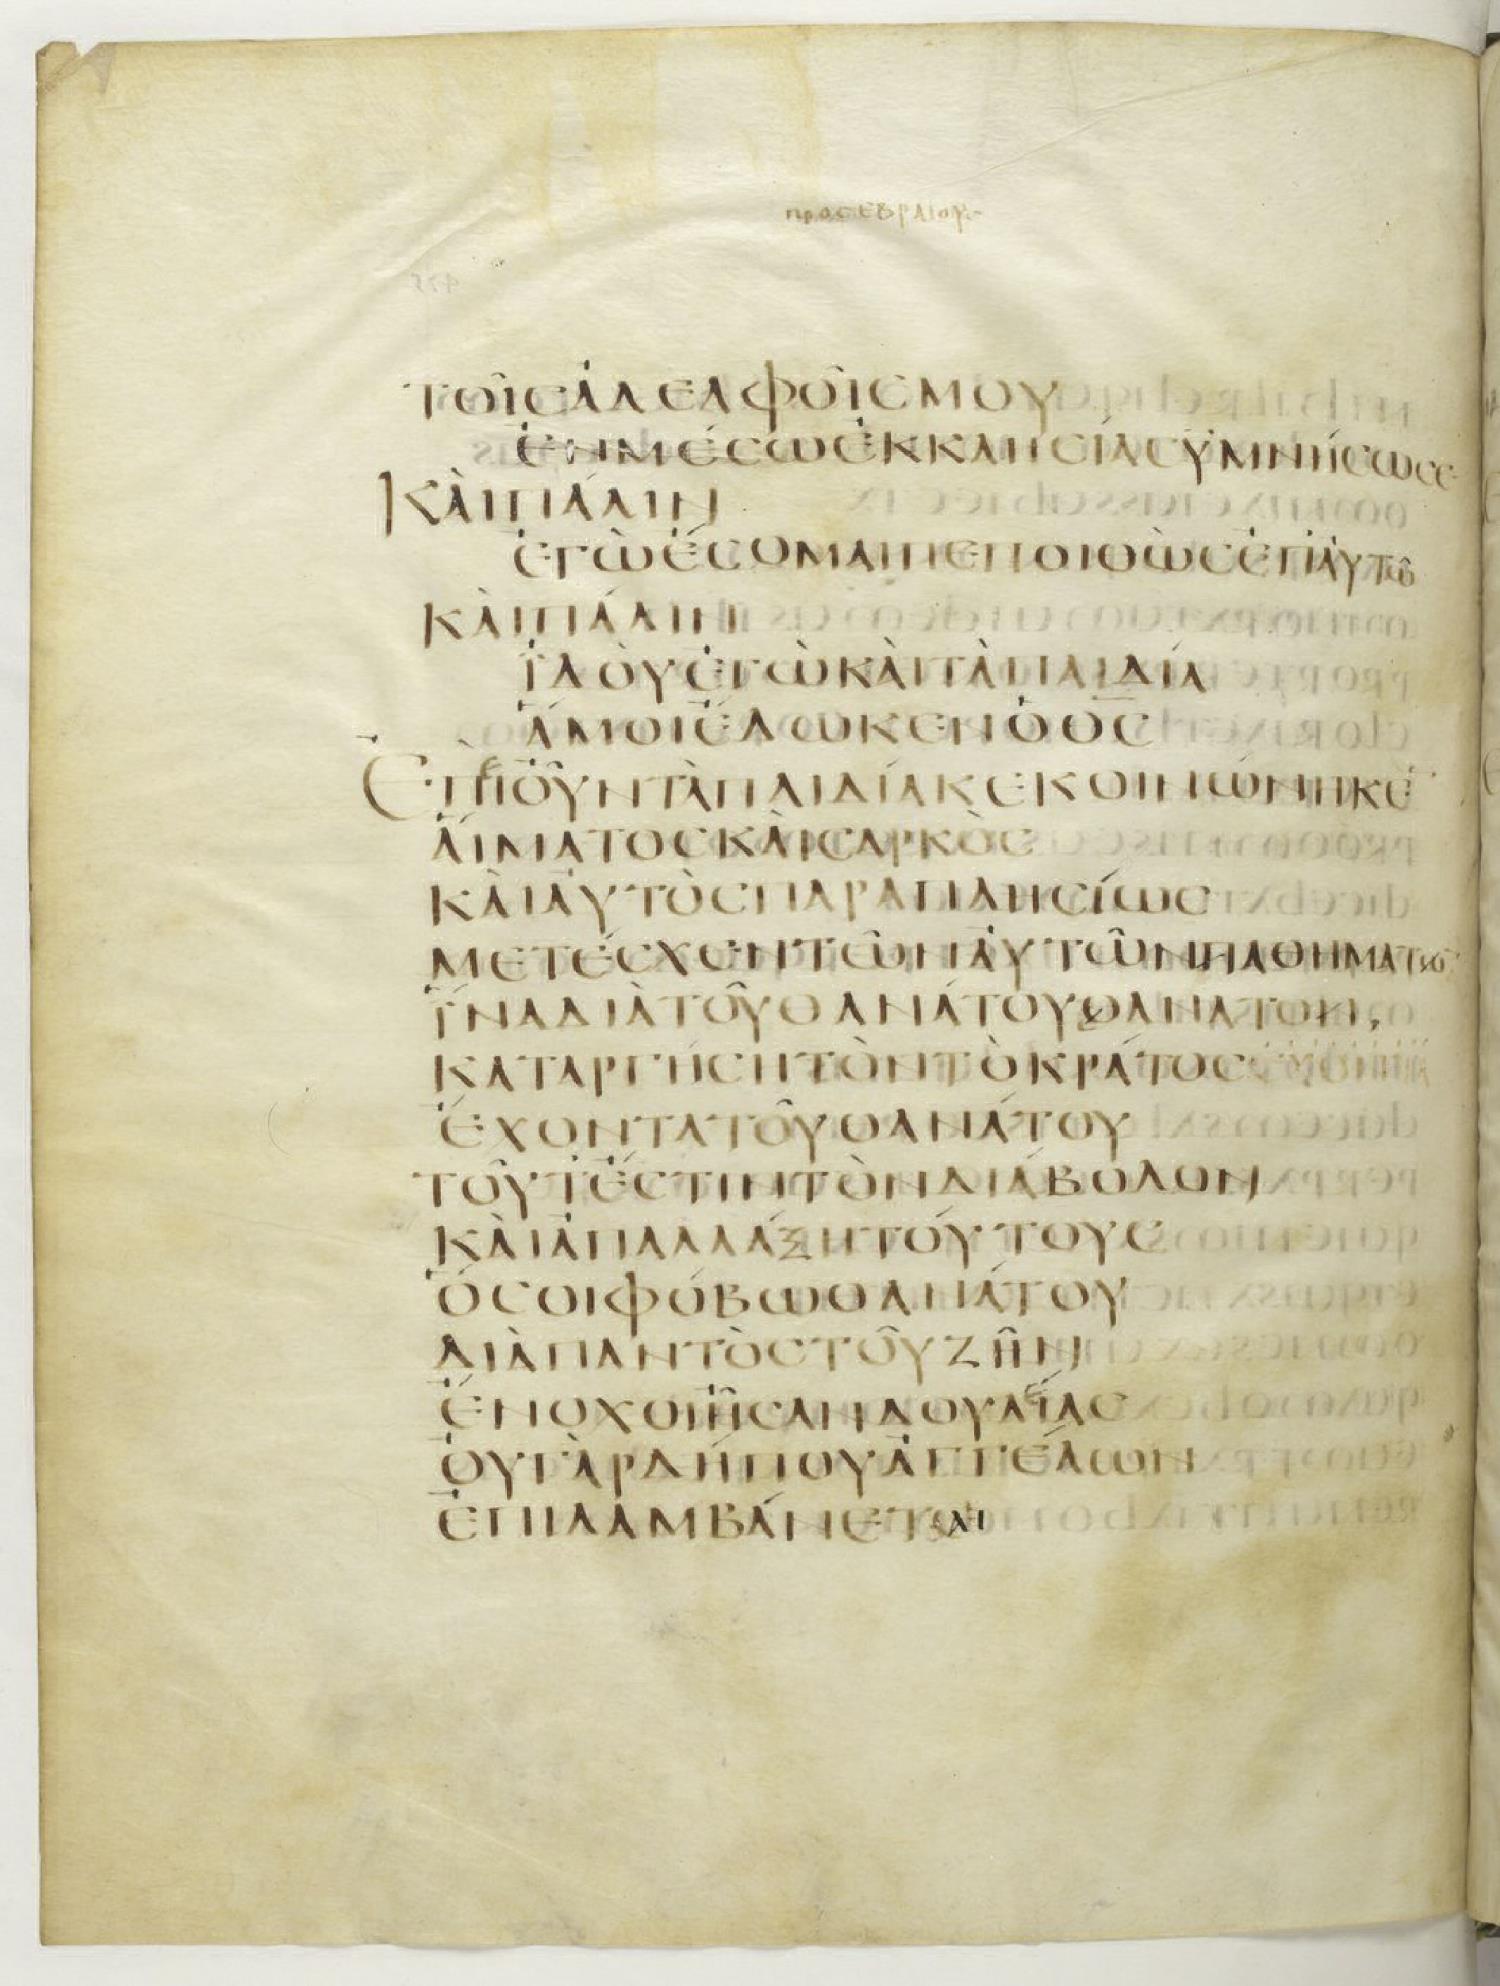 ΠΡΟΣ ΕΒΡΑΙΟΥΣ
ΤΟΙϹΑΔΕΛΦΟΙϹΜΟΥ
ΕΝΜΕϹΩΕΚΚΛΗϹΙΑϹΥΜΝΗϹΩϹΕ
ΚΑΙΠΑΛΙΝ
ΕΓΩΕϹΟΜΑΙΠΕΠΟΙΘΩϹΕΠΑΥΤΩ
ΚΑΙΠΑΛΙΝ
ΪΔΟΥΕΓΩΚΑΙΤΑΠΑΙΔΙΑ
ΑΜΟΙΕΔΩΚΕΝΟΘϹ
ΕΠΕΙΟΥΝΤΑΠΑΙΔΙΑΚΕΚΟΙΝΩΝΗΚΕ
ΑΙΜΑΤΟϹΚΑΙϹΑΡΚΟϹ
ΚΑΙΑΥΤΟϹΠΑΡΑΠΛΗϹΙΩϹ
ΜΕΤΕϹΧΕΝΤΩΝΑΥΤΩΝΠΑΘΗΜΑΤΩ
ΪΝΑΔΙΑΤΟΥΘΑΝΑΤΟΥΘΑΝΑΤΟΝ
ΚΑΤΑΡΓΗϹΗΤΟΝΤΟΚΡΑΤΟϹ
ΕΧΟΝΤΑΤΟΥΘΑΝΑΤΟΥ
ΤΟΥΤΕϹΤΙΝΤΟΝΔΙΑΒΟΛΟΝ
ΚΑΙΑΠΑΛΛΑΞΗΤΟΥΤΟΥϹ
ΟϹΟΙΦΟΒΩΘΑΝΑΤΟΥ
ΔΙΑΠΑΝΤΟϹΤΟΥΖΗΝ
ΕΝΟΧΟΙΗϹΑΝΔΟΥΛΕΙΑϹ
ΟΥΓΑΡΔΗΠΟΥΑΓΓΕΛΩΝ
ΕΠΙΛΑΜΒΑΝΕΤΑΙ